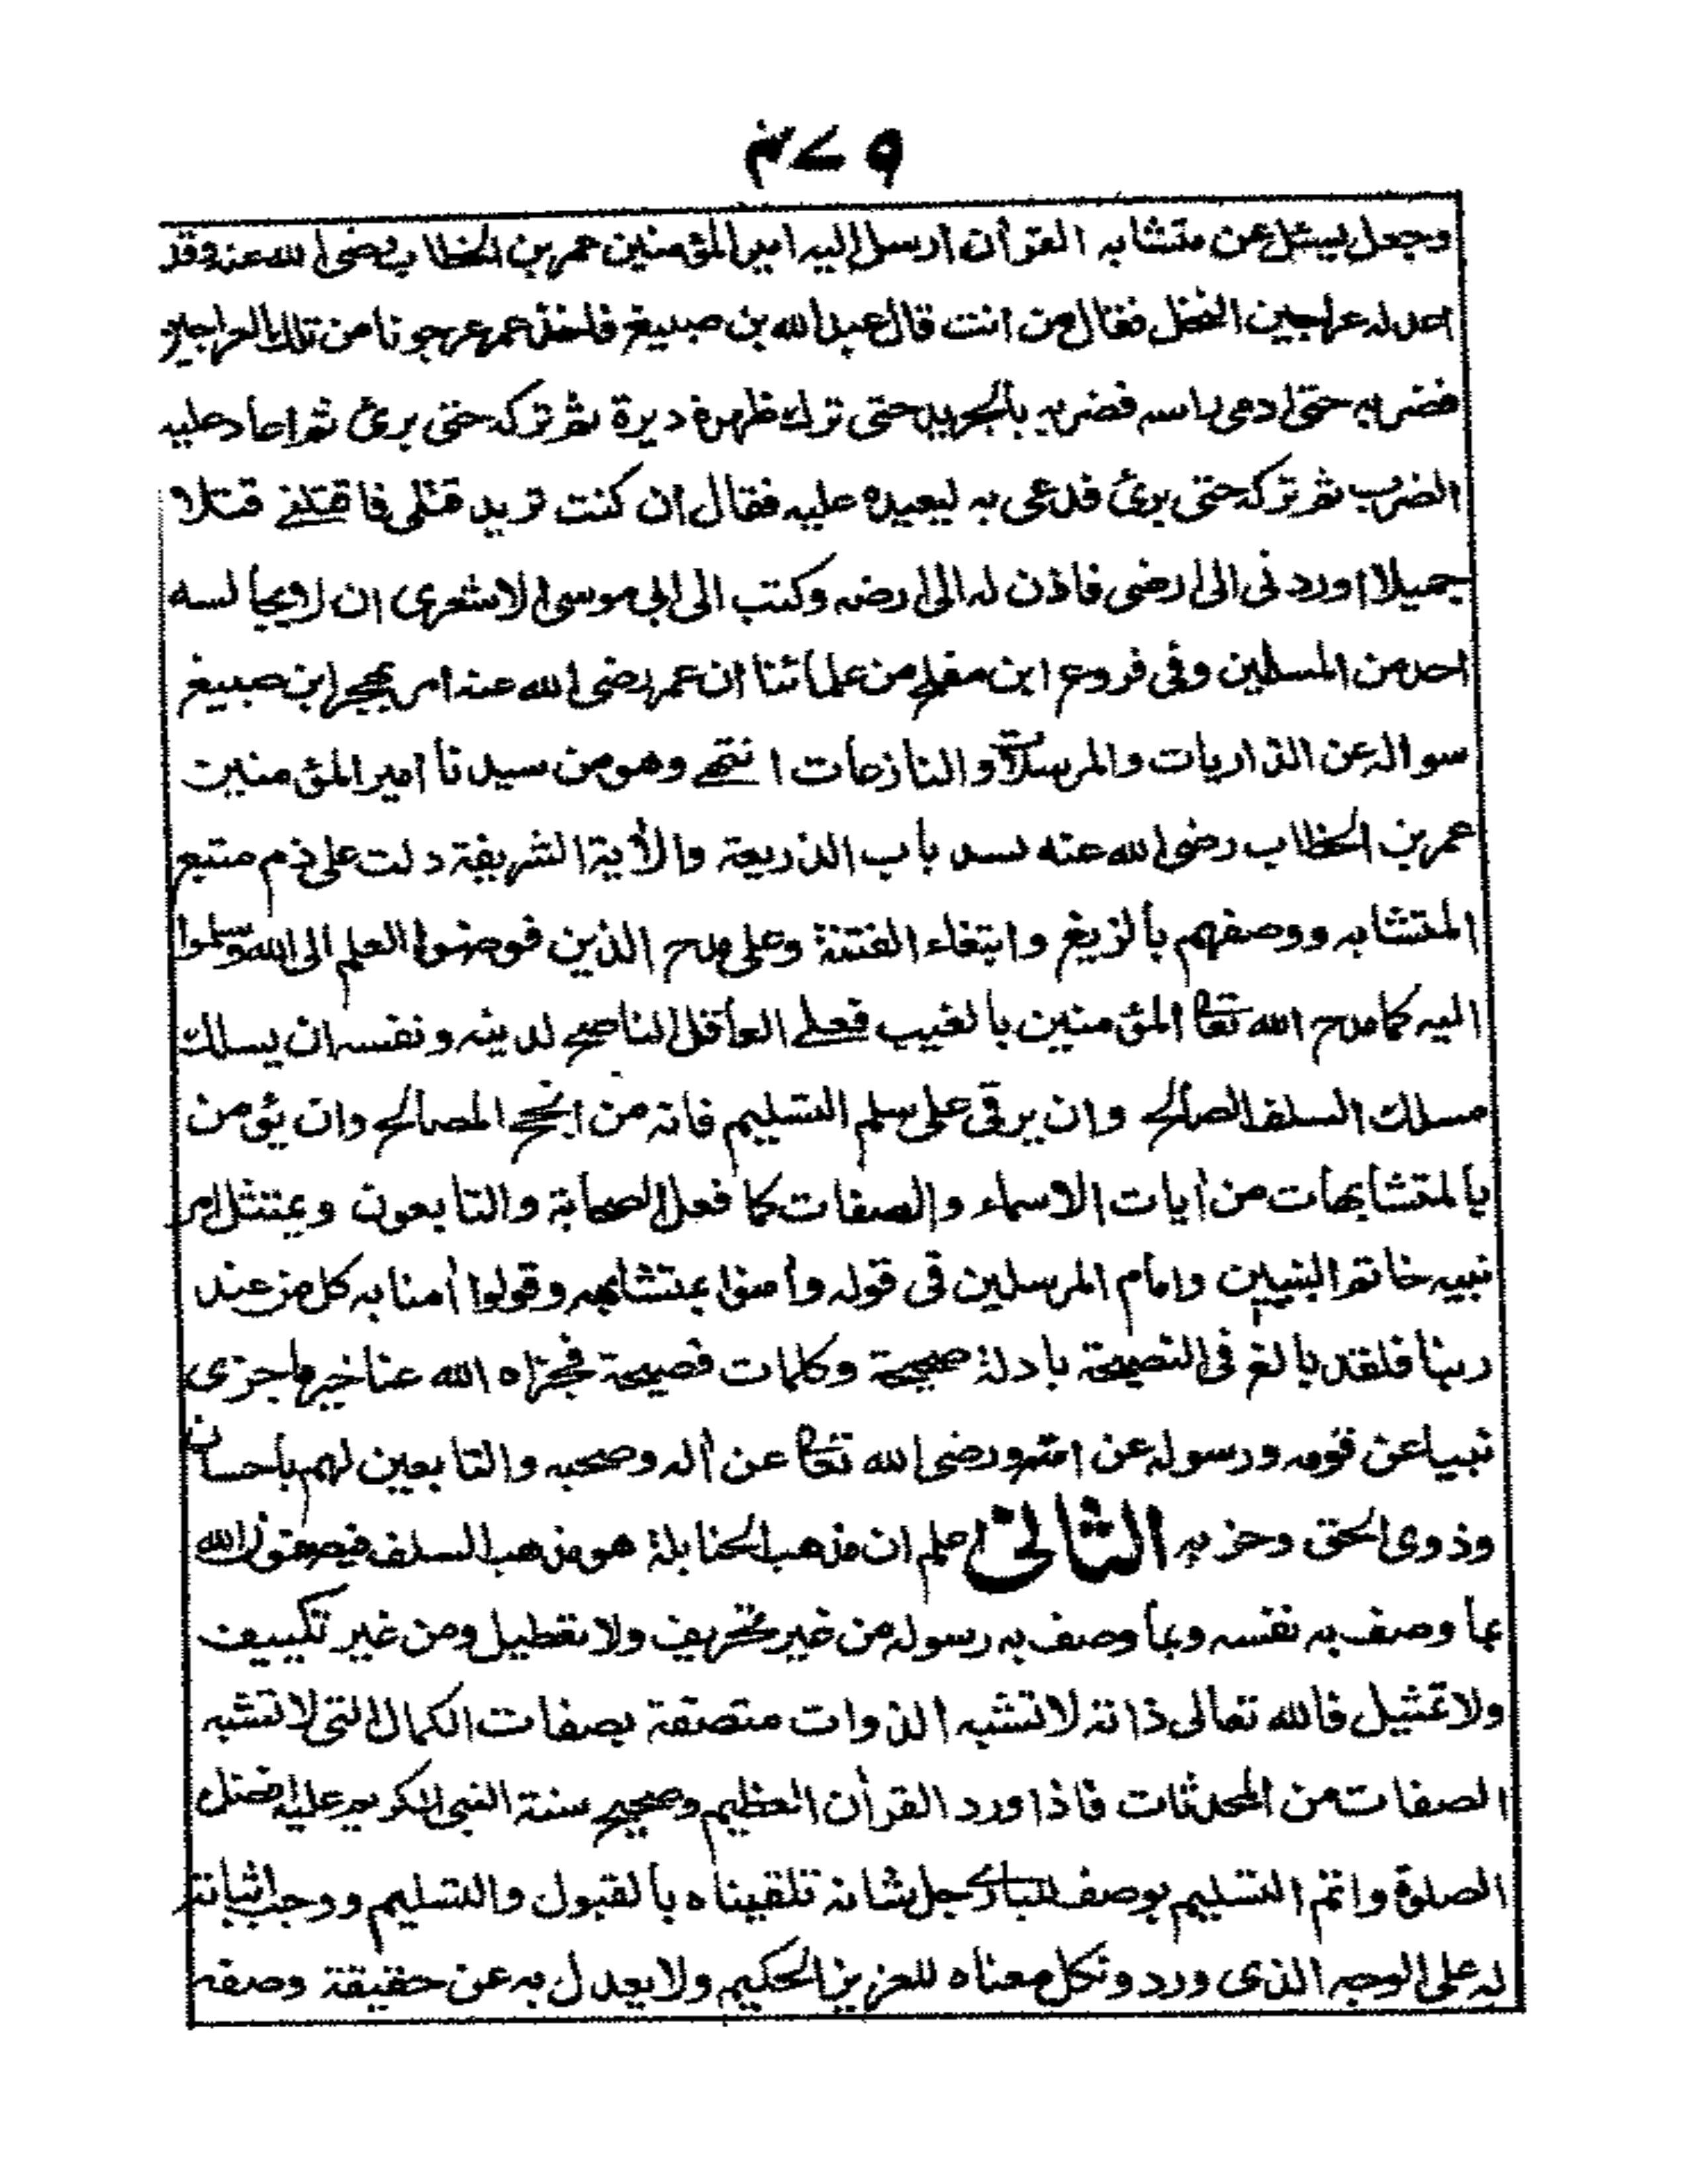 ٤٧٩
وجعل يسئل عن متشابه القرأن ارسل اليه امير المؤمنين عمر بن الخطاب رضى الله عنه وقد
اعد له عراجين النخل فقال من انت قال عبد الله بن صبيغ فاخذ عمر عرجونا من تلك العراجين
فضربه حتى ادمى راسه فضربه بالجريد حتى ترك ظهره دبرة ثم تركه حتى برئ ثم اعاد عليه
الضرب ثم تركه حتى برئ فدعى به ليعيده عليه فقال ان كنت تريد قتلى فاقتلنے قتلا
جميلا اوردنى الى ارضى فاذن له الى ارضه وكتب الى ابى موسى الاشعرى ان لا يجالسه
احد من المسلمين وفى فروع ابن مفلح من علمائنا ان عمر رضى الله عنه امر بهجر ابن صبيغ
سواله عن الذاريات والمرسلات والنازعات انتهے وهو من سيدنا امير المؤمنين
عمر بن الخطاب رضى الله عنه لسد باب الذريعة والأية الشريفة دلت على ذم متبع
المتشابه ووصفهم بالزيغ وابتغاء الفتنة وعلى مدح الذين فوضوا العلم الى الله وسلموا
اليه كما مدح الله تعا المؤمنين بالغيب فعلے العاقل الناصح لدينه ونفسه ان يسلك
مسلك السلف الصالح وان يرقى على سلم التسليم فانه من انجح المصالح وان يؤمن
بالمتشابهات من أيات الاسماء والصفات كما فعل الصحابة والتابعون ويمتثل امر
نبيه خاتم النبيين وامام المرسلين فى قوله وأمنوا بمتشابهه وقولوا أمنا به كل من عند
ربنا فلقد بالغ فى النصيحة بادلة صحيحة وكلمات فصيحة فجزاه الله عنا خير ما جزى
نبيا عن قومه ورسوله عن امته ورضى الله تعا عن أله وصحبه والتابعين لهم باحسان
وذوى الحق وحزبه الثالث اعلم ان مذهب الحنابلة هو مذهب السلف فيصفون الله
بما وصف به نفسه وبما وصف به رسوله من غير تحريف ولا تعطيل ومن غير تكييف
ولا تمثيل فالله تعالى ذاته لا تشبه الذوات متصفة بصفات الكمال التى لا تشبه
الصفات من المحدثات فاذا ورد القرأن العظيم وصحيح سنة النبى الكريم عليه افضل
الصلوة واتم التسليم بوصف للبارى جل شانه تلقيناه بالقبول والتسليم ووجب اثباته
له على الوجه الذى ورد ونكل معناه للعزيز الحكيم ولا يعدل به عن حقيقة وصفه